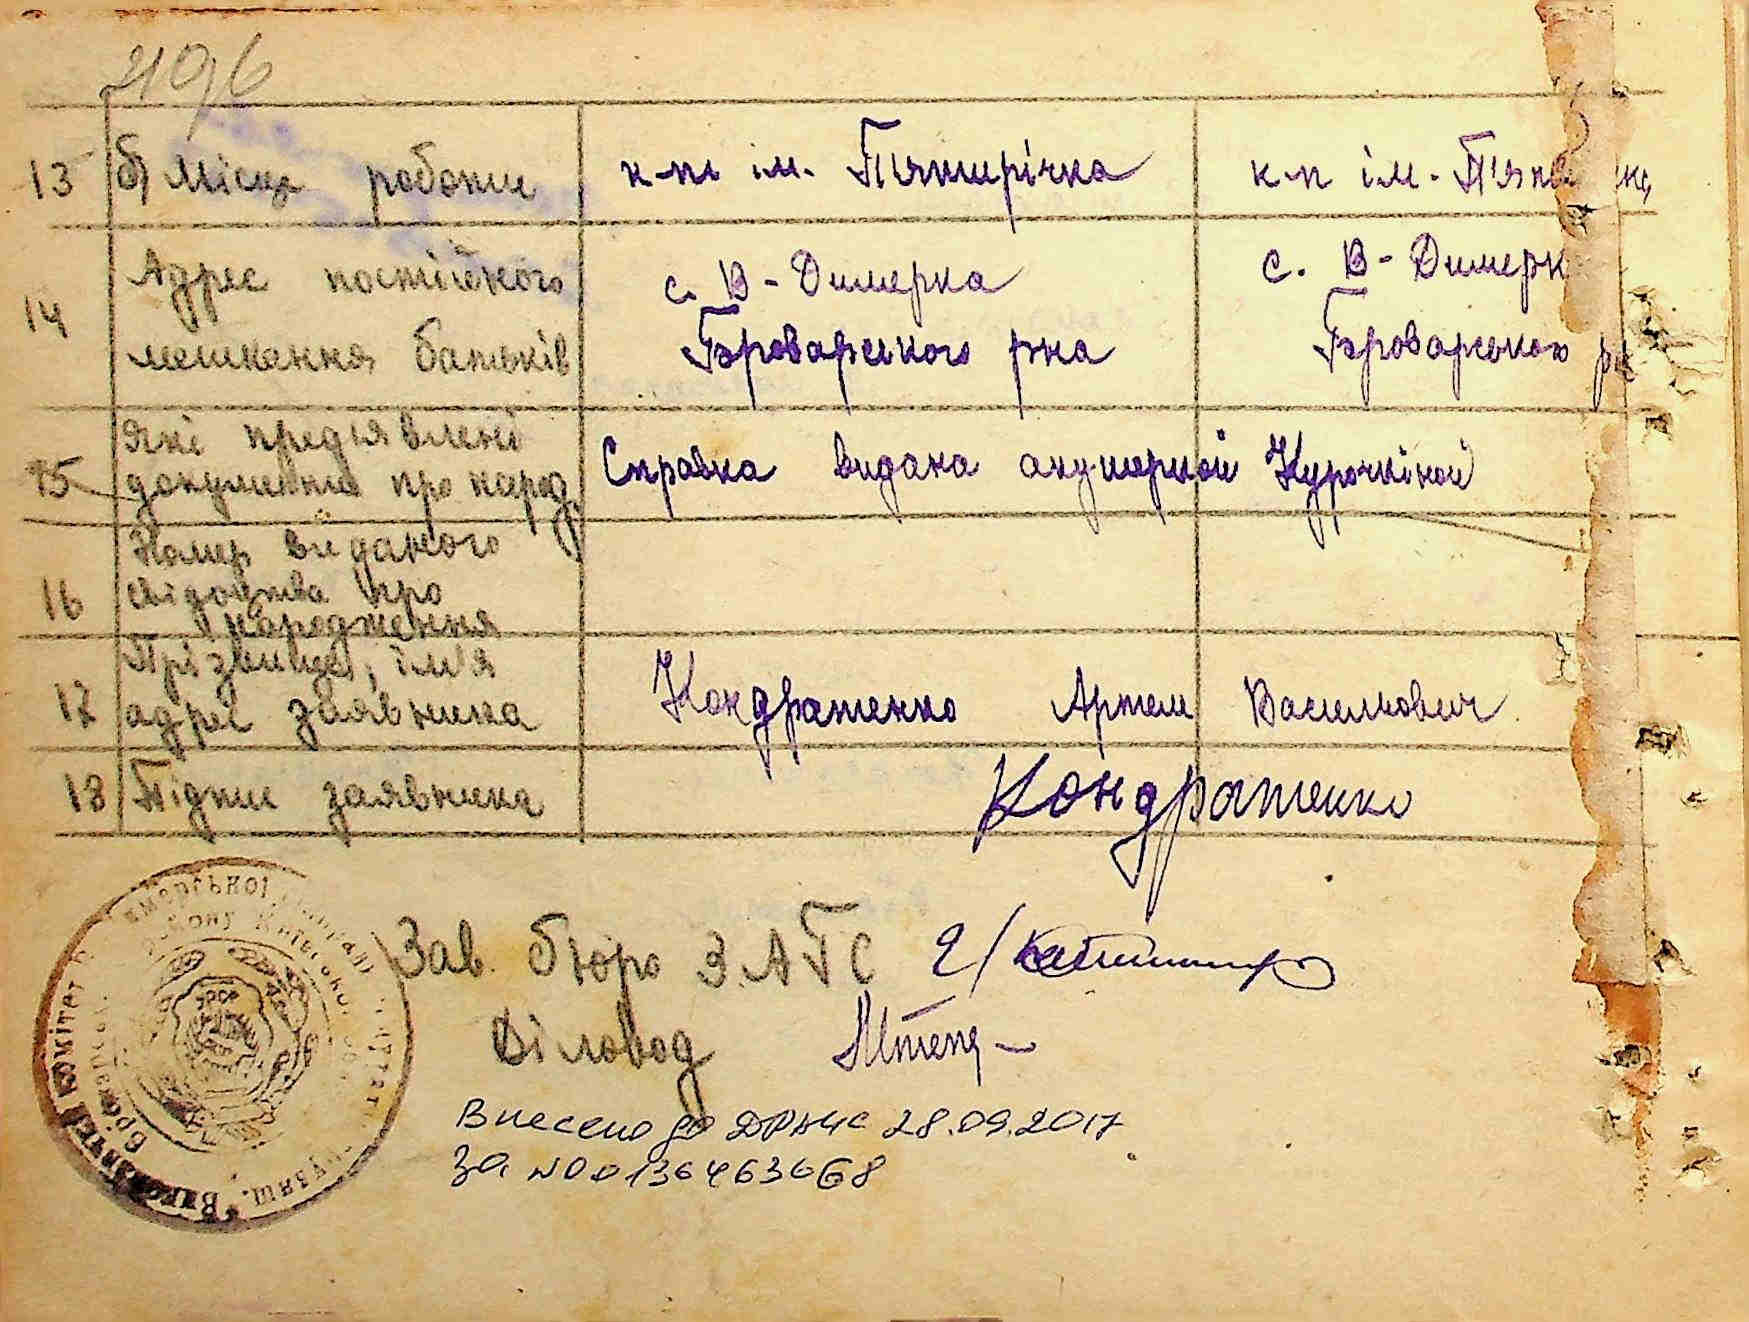 2196
13 б) Місце роботи к-пі ім. Пятирічка к-п ім. П'яти
14 Адрес постійного мешкання батьків с. В-Димерка Броварського рна с. В-Димерк Броварського р
15 які предявлені документи про народ. Справка видана акушеркой Курочкіной
16 Номер виданого свідоцтва про народження
17 Прізвище, ім'я адрес заявника Кондратенко Артем Василкович
18 Підпис заявника Кондратенко
Зав. бюро ЗАГС
Діловод
Внесено до ДРАЦС 28.09.2017
за N00136463668